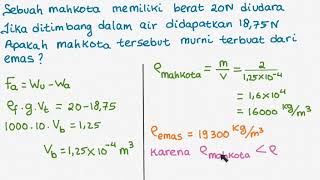 Sebuah mahkota memiliki berat 20N diudara
Jika ditimbang dalam air didapatkan 18,75N
Apakah mahkota tersebut murni terbuat dari
emas?
Fa = Wu - Wa
ρf . g . Vt = 20 - 18,75
1000 . 10 . Vb = 1,25
Vb = 1,25 x 10⁻⁴ m³
ρmahkota = m/V = 2/1,25x10⁻⁴
= 1,6 x 10⁴
= 16000 kg/m³
ρemas = 19300 kg/m³
Karena ρmahkota < ρ